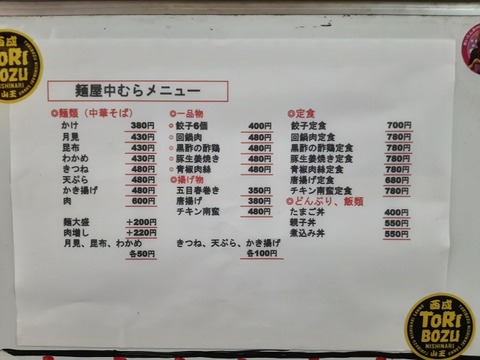 麺屋中むらメニュー
◎麺類（中華そば）
かけ 380円
月見 430円
昆布 430円
わかめ 430円
きつね 480円
天ぷら 480円
かき揚げ 480円
肉 600円
麺大盛 +200円
肉増し +220円
月見、昆布、わかめ 各50円
きつね、天ぷら、かき揚げ 各100円
◎一品物
○餃子6個 400円
○回鍋肉 480円
○黒酢の酢鶏 480円
○豚生姜焼き 480円
○青椒肉絲 480円
◎揚げ物
五目春巻き 350円
唐揚げ 380円
チキン南蛮 480円
◎定食
餃子定食 700円
回鍋肉定食 780円
黒酢の酢鶏定食 780円
豚生姜焼き定食 780円
青椒肉絲定食 780円
唐揚げ定食 680円
チキン南蛮定食 780円
◎どんぶり、飯類
たまご丼 400円
親子丼 550円
煮込み丼 550円
西成
TORI
BOZU
NISHINARI
山王
西成
TORI
BOZU
NISHINARI
山王